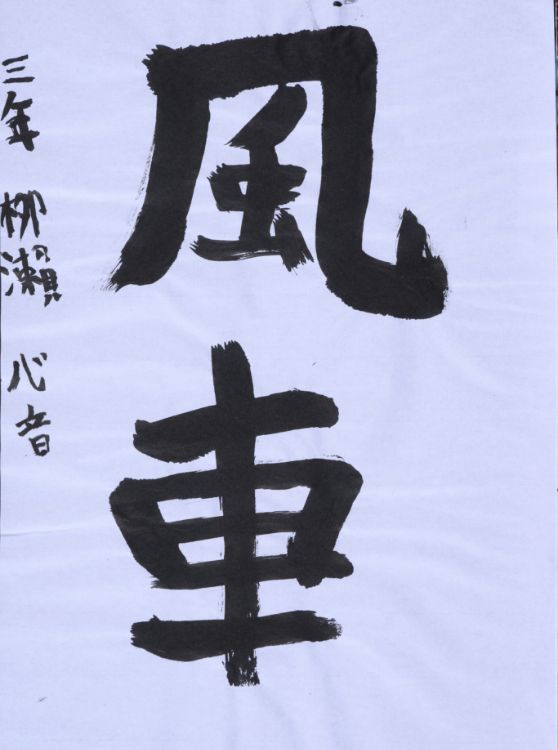 風車
三年 柳瀬 心音